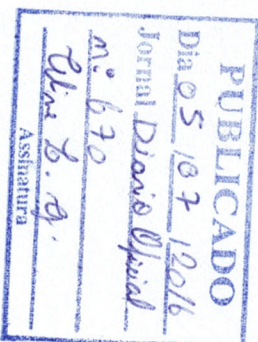 PUBLICADO
Dia 05 / 07 / 2016
Jornal Diário Oficial
nº 670
Assinatura